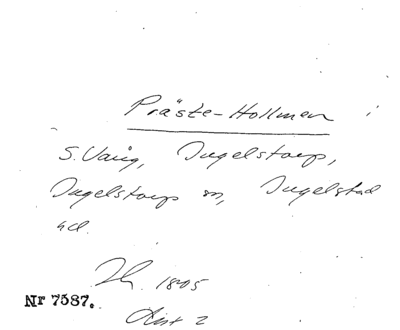 Präste-Hollmen i
S. Vång, Ingelstorp,
Ingelstorp sn, Ingelstad
hd.
1805
Nr 7587.
2